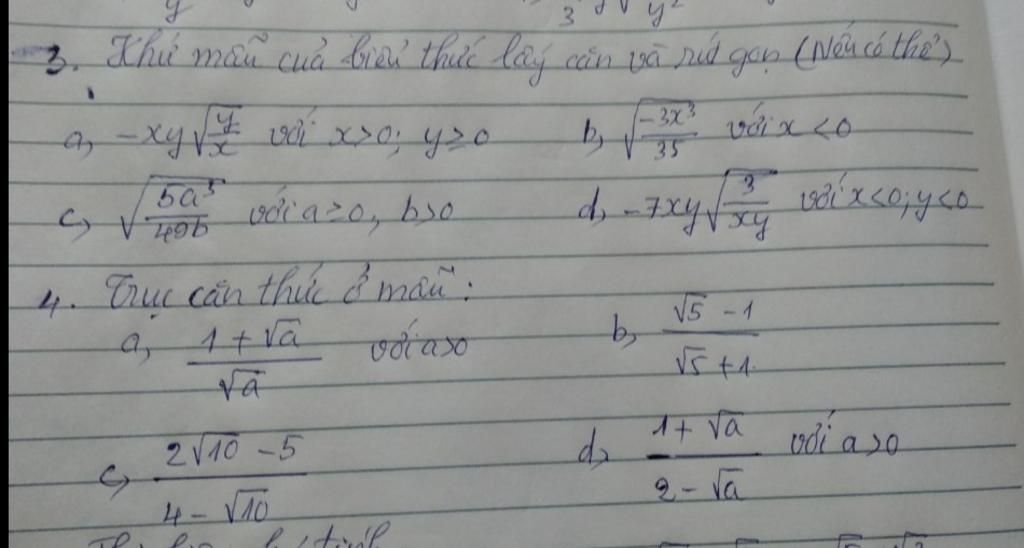 3. Khử mẫu của biểu thức lấy căn và rút gọn (Nếu có thể)
a, -xy√(y/x) với x>0; y≥0 b, √(-3x³/35) với x<0
c, √(5a³/49b) với a≥0, b>0 d, -7xy√(3/xy) với x<0; y<0
4. Trục căn thức ở mẫu:
a, (1+√a)/√a với a>0 b, (√5 -1)/(√5 +1)
c, (2√10 -5)/(4-√10) d, (1+√a)/(2-√a) với a>0